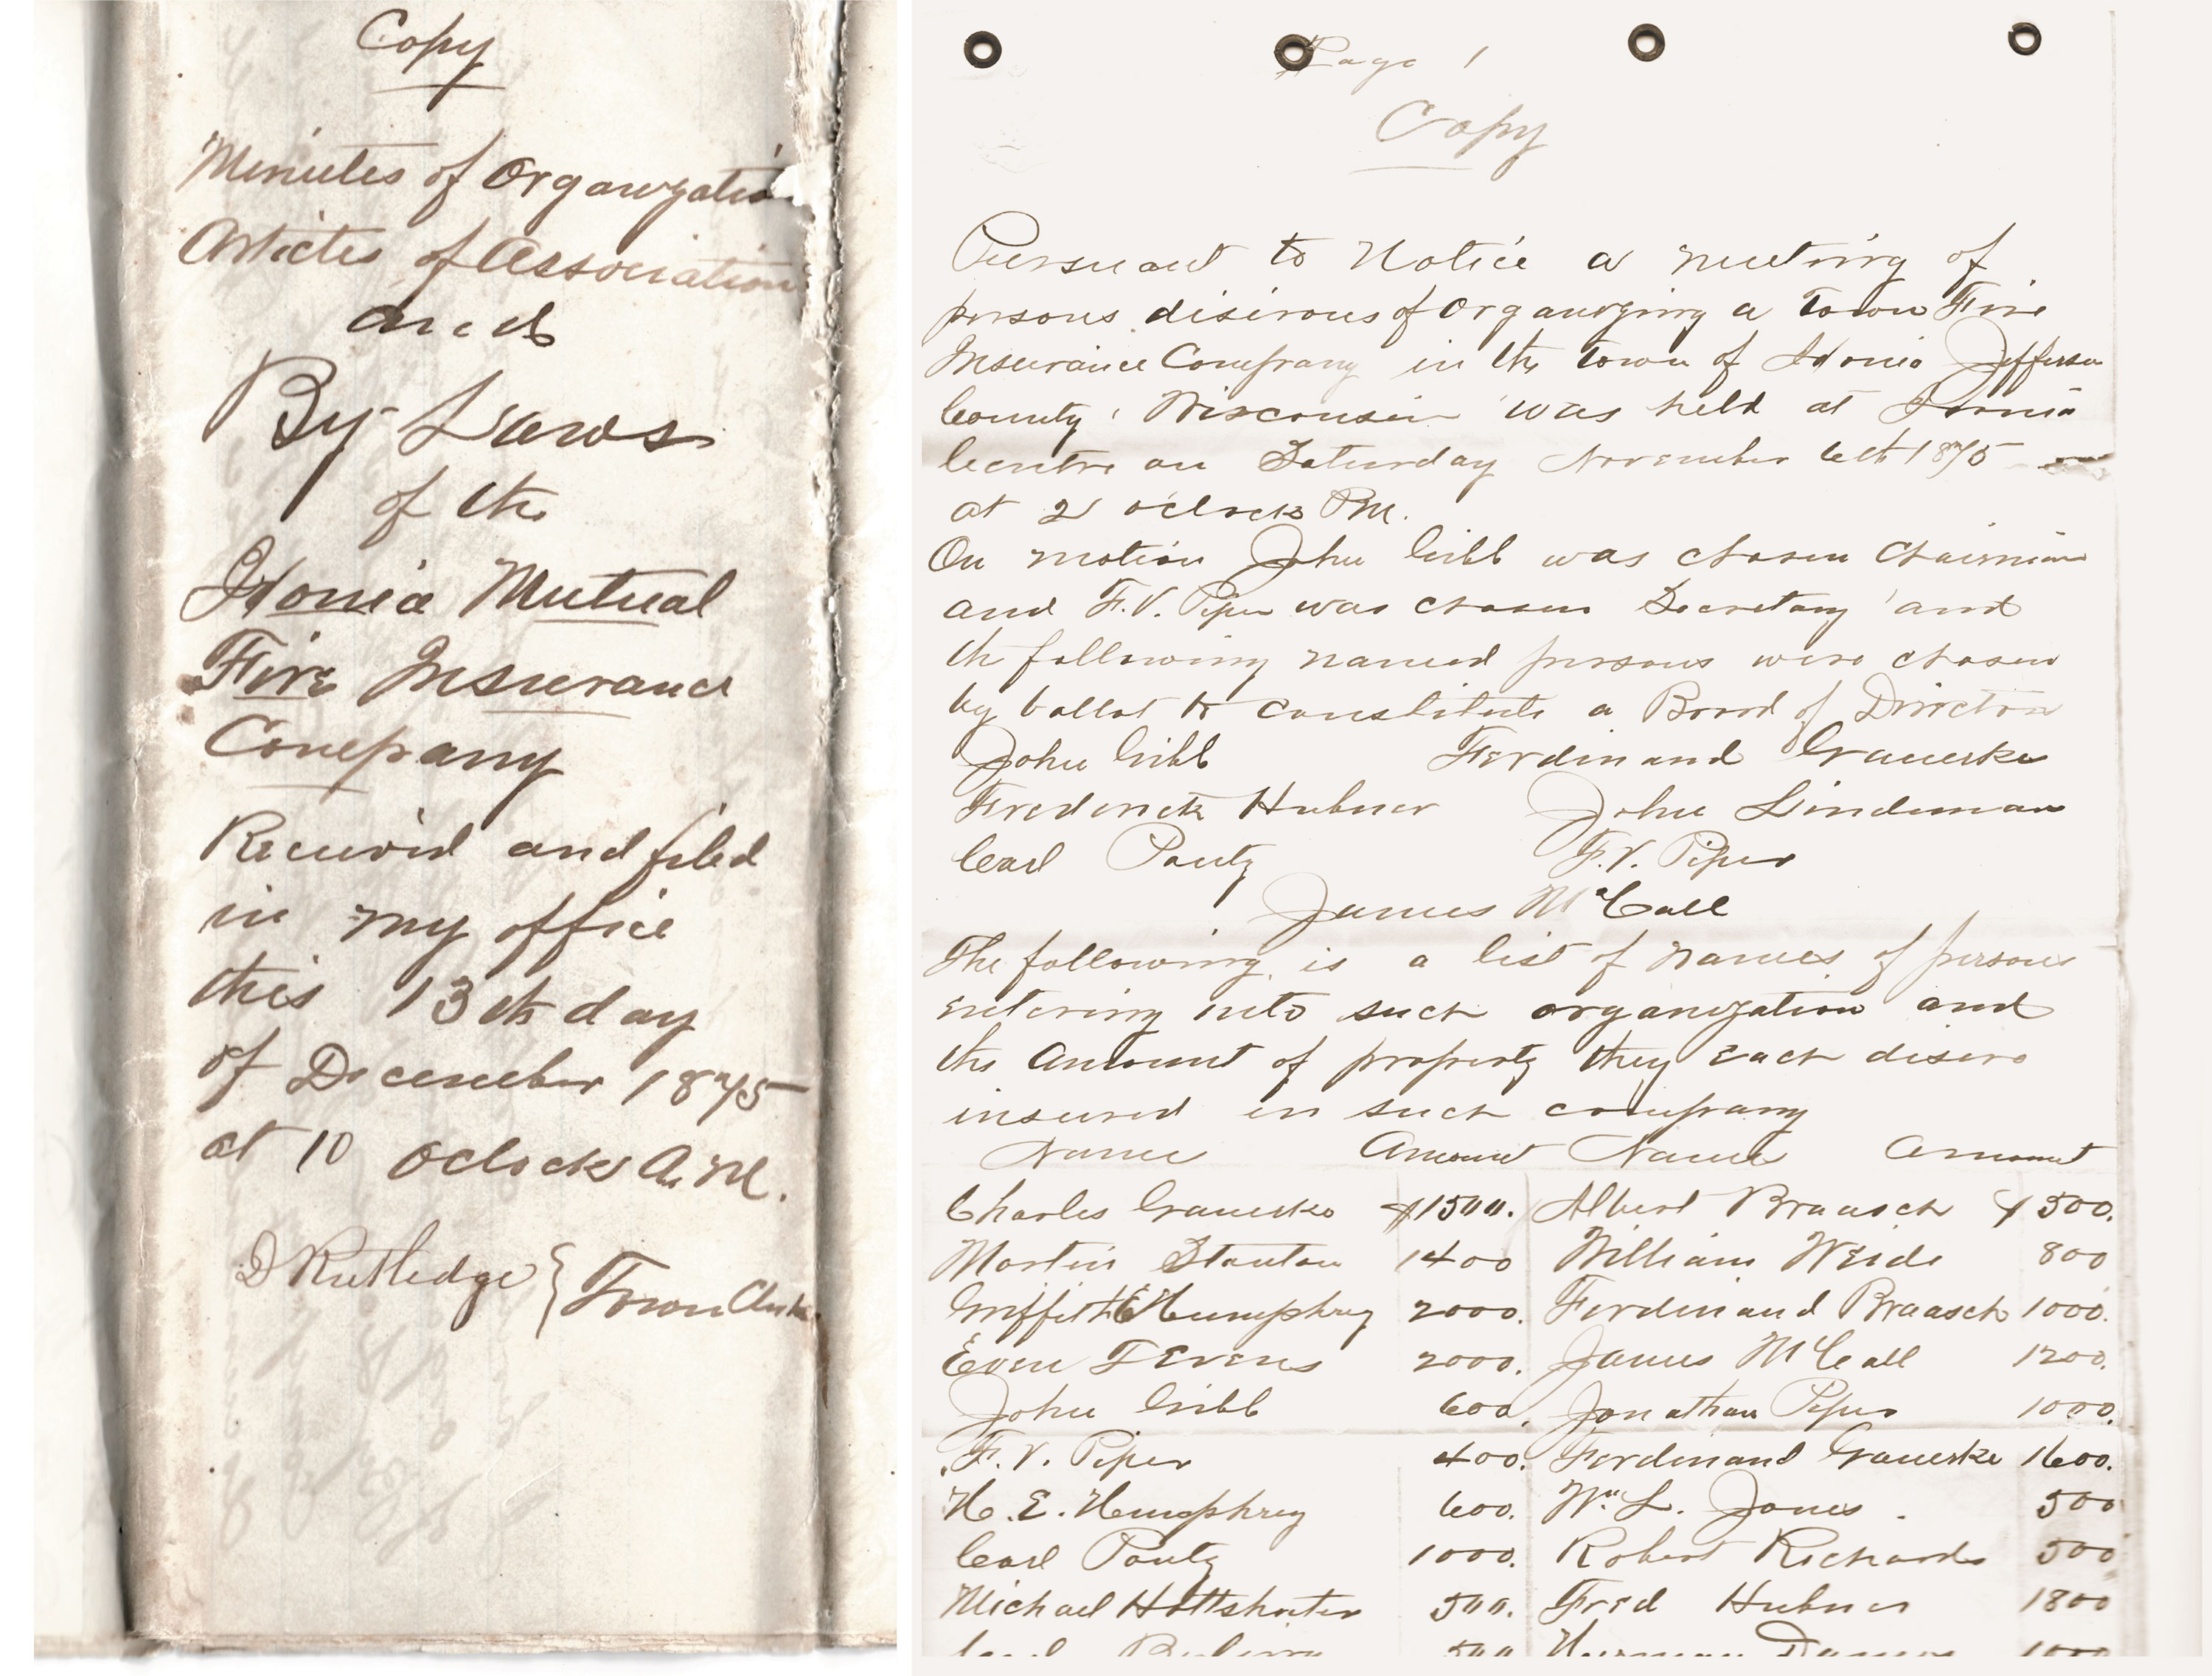 Copy
Minutes of Organization
Articles of Association
and
By Laws
of the
Ixonia Mutual
Fire Insurance
Company
Received and filed
in my office
this 13th day
of December 1875
at 10 Oclock A.M.
D Rutledge } Town Clerk
Page 1
Copy
Pursuant to Notice a meeting of
persons disirous of Organizing a Town Fire
Insurance Company in the town of Ixonia Jefferson
County, Wisconsin was held at Ixonia
Centre on Saturday November 6th 1875
at 2 oclock P.M.
On motion John Gibb was chosen Chairman
and F.V. Piper was chosen Secretary and
the following named persons were chosen
by ballot to constitute a Board of Directors
John Gibb Ferdinand Grauerke
Frederick Hubner John Lindeman
Carl Pautz F.V. Piper
James McCall
The following is a list of names of persons
entering into such organization and
the Amount of property they each disire
insured in such company
Name Amount Name Amount
Charles Grauerke $1500. Albert Braasch $500.
Martin Stanton 1400 William Weide 800
Griffith Humphrey 2000. Ferdinand Braasch 1000.
Even T Evens 2000. James McCall 1200.
John Gibb 600. Jonathan Piper 1000.
F.V. Piper 400. Ferdinand Grauerke 1600.
H.E. Humphrey 600. Wm L. Jones. 500
Carl Pautz 1000. Robert Richards 500
Michael 500. Fred Hubner 1800
500 Herman 1000